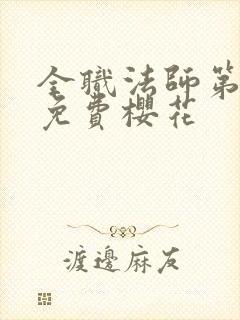 全職法師第
免費櫻花
渡邊麻友